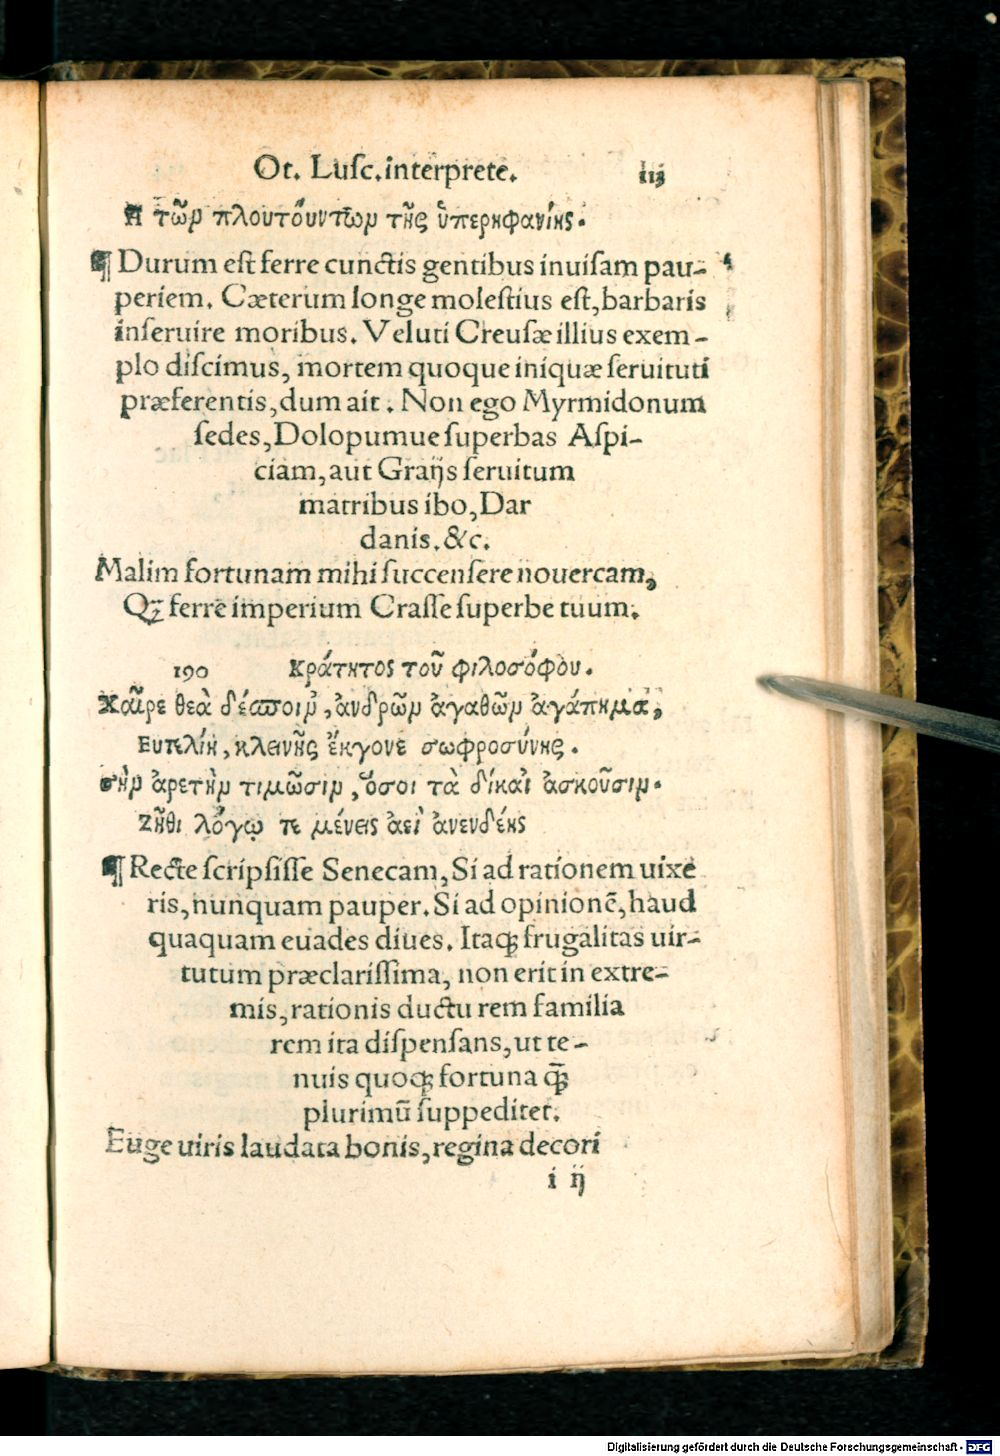 Ot. Luſc. interprete. iij
Ἢ τῶν πλουτούντων τῆς ὑπερηφανίης.
¶ Durum eſt ferre cunctis gentibus inuiſam pau-
periem. Cæterum longe moleſtius eſt, barbaris
inſeruire moribus. Veluti Creuſæ illius exem-
plo diſcimus, mortem quoque iniquæ ſeruituti
præferentis, dum ait. Non ego Myrmidonum
ſedes, Dolopumue ſuperbas Aſpi-
ciam, aut Graijs ſeruitum
matribus ibo, Dar
danis. &c.
Malim fortunam mihi ſuccenſere nouercam,
Qꝫ ferre imperium Craſſe ſuperbe tuum.
190 Κράτητος τοῦ φιλοσόφου.
Χαῖρε θεὰ δέσποιν', ἀνδρῶν ἀγαθῶν ἀγάπημα,
Ευτελίη, κλεινῆς ἔκγονε σωφροσύνης.
σὴν ἀρετὴν τιμῶσιν, ὅσοι τὰ δίκαι' ἀσκοῦσιν.
Ζῆθι λόγῳ τε μένεις ἀεὶ ἀνενδέης
¶ Recte ſcripſiſſe Senecam, Si ad rationem uixe
ris, nunquam pauper. Si ad opinionē, haud
quaquam euades diues. Itaqꝫ frugalitas uir-
tutum præclariſſima, non erit in extre-
mis, rationis ductu rem familia
rem ita diſpenſans, ut te-
nuis quoqꝫ fortuna q̄ꝫ
plurimū ſuppeditet.
Euge uiris laudata bonis, regina decori
i ij
Digitalisierung gefördert durch die Deutsche Forschungsgemeinschaft - DFG